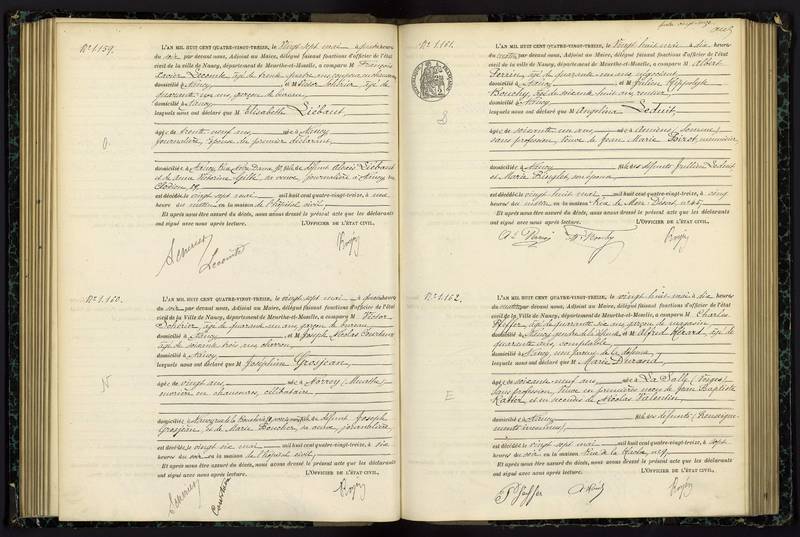 N° 1.159.
L'AN MIL HUIT CENT QUATRE-VINGT-TREIZE, le vingt sept mai à quatre heures
du soir par devant nous, Adjoint au Maire, délégué faisant fonctions d'officier de l'état
civil de la ville de Nancy, département de Meurthe-et-Moselle, a comparu M François
Xavier Lecomte, âgé de trente quatre ans, coupeur en chaussures
domicilié à Nancy et M Victor Schérier, âgé de
quarante un ans, garçon de bureau
domicilié à Nancy
lesquels nous ont déclaré que M Elisabeth Liébaut,
âgée de trente neuf ans née à Nancy
journalière, épouse du premier déclarant
domiciliée à Nancy, Rue Notre Dame, fille de défunt Alexis Liébaut
et de Anne Victorine sa veuve, journalière à Nancy, rue
Clodion
est décédée le vingt sept mai mil huit cent quatre-vingt-treize, à une
heure du matin en la maison de l'hôpital civil,
Et après nous être assuré du décès, nous avons dressé le présent acte que les déclarants
ont signé avec nous après lecture. L'OFFICIER DE L'ÉTAT CIVIL,
Lecomte
N° 1.160.
L'AN MIL HUIT CENT QUATRE-VINGT-TREIZE, le vingt sept mai à quatre heures
du soir par devant nous, Adjoint au Maire, délégué faisant fonctions d'officier de l'état
civil de la Ville de Nancy, département de Meurthe-et-Moselle, a comparu M Victor
Schérier, âgé de quarante un ans, garçon de bureau
domicilié à Nancy et M Joseph Nicolas
âgé de soixante trois ans, charron
domicilié à Nancy
lesquels nous ont déclaré que M Joséphine Grosjean,
âgée de vingt ans née à Norroy (Meurthe)
ouvrière en chaussures, célibataire
domiciliée à Nancy fille de défunt Joseph
Grosjean, et de Marie Boucher, sa veuve, journalière
est décédée le vingt six mai mil huit cent quatre-vingt-treize, à six
heures du soir en la maison de l'hôpital civil,
Et après nous être assuré du décès, nous avons dressé le présent acte que les déclarants
ont signé avec nous après lecture. L'OFFICIER DE L'ÉTAT CIVIL,
N° 1.161.
L'AN MIL HUIT CENT QUATRE-VINGT-TREIZE, le vingt huit mai à dix heures
du matin par devant nous, Adjoint au Maire, délégué faisant fonctions d'officier de l'état
civil de la ville de Nancy, département de Meurthe-et-Moselle, a comparu M Albert
Perrin, âgé de quarante ans, négociant
domicilié à Nancy et M Julien Hippolyte
Bouchy, âgé de soixante huit ans, rentier
domicilié à Nancy
lesquels nous ont déclaré que M Angelina Leduit,
âgée de soixante un ans née à Amiens (Somme)
sans profession, veuve de Jean Marie Poirot, menuisier
domiciliée à Nancy fille des défunts Julien Leduit
et Marie son épouse
est décédée le vingt huit mai mil huit cent quatre-vingt-treize, à cinq
heures du matin en la maison Rue de Mon Désert, n° 45
Et après nous être assuré du décès, nous avons dressé le présent acte que les déclarants
ont signé avec nous après lecture. L'OFFICIER DE L'ÉTAT CIVIL,
N° 1.162.
L'AN MIL HUIT CENT QUATRE-VINGT-TREIZE, le vingt huit mai à dix heures
du matin par devant nous, Adjoint au Maire, délégué faisant fonctions d'officier de l'état
civil de la Ville de Nancy, département de Meurthe-et-Moselle, a comparu M Charles
Pfiffer, âgé de quarante six ans, garçon de magasin
domicilié à Nancy, gendre de la défunte et M Alfred Hérard, âgé de
quarante ans, comptable
domicilié à Nancy, non parent de la défunte
lesquels nous ont déclaré que M Marie Durand,
âgée de soixante neuf ans née à La Salle (Vosges)
sans profession, veuve en premières noces de Jean Baptiste
et en secondes de Nicolas Valentin
domiciliée à Nancy fille des défunts (Renseigne-
ments inconnus)
est décédée le vingt sept mai mil huit cent quatre-vingt-treize, à sept
heures du soir en la maison Rue de la n° 9
Et après nous être assuré du décès, nous avons dressé le présent acte que les déclarants
ont signé avec nous après lecture. L'OFFICIER DE L'ÉTAT CIVIL,